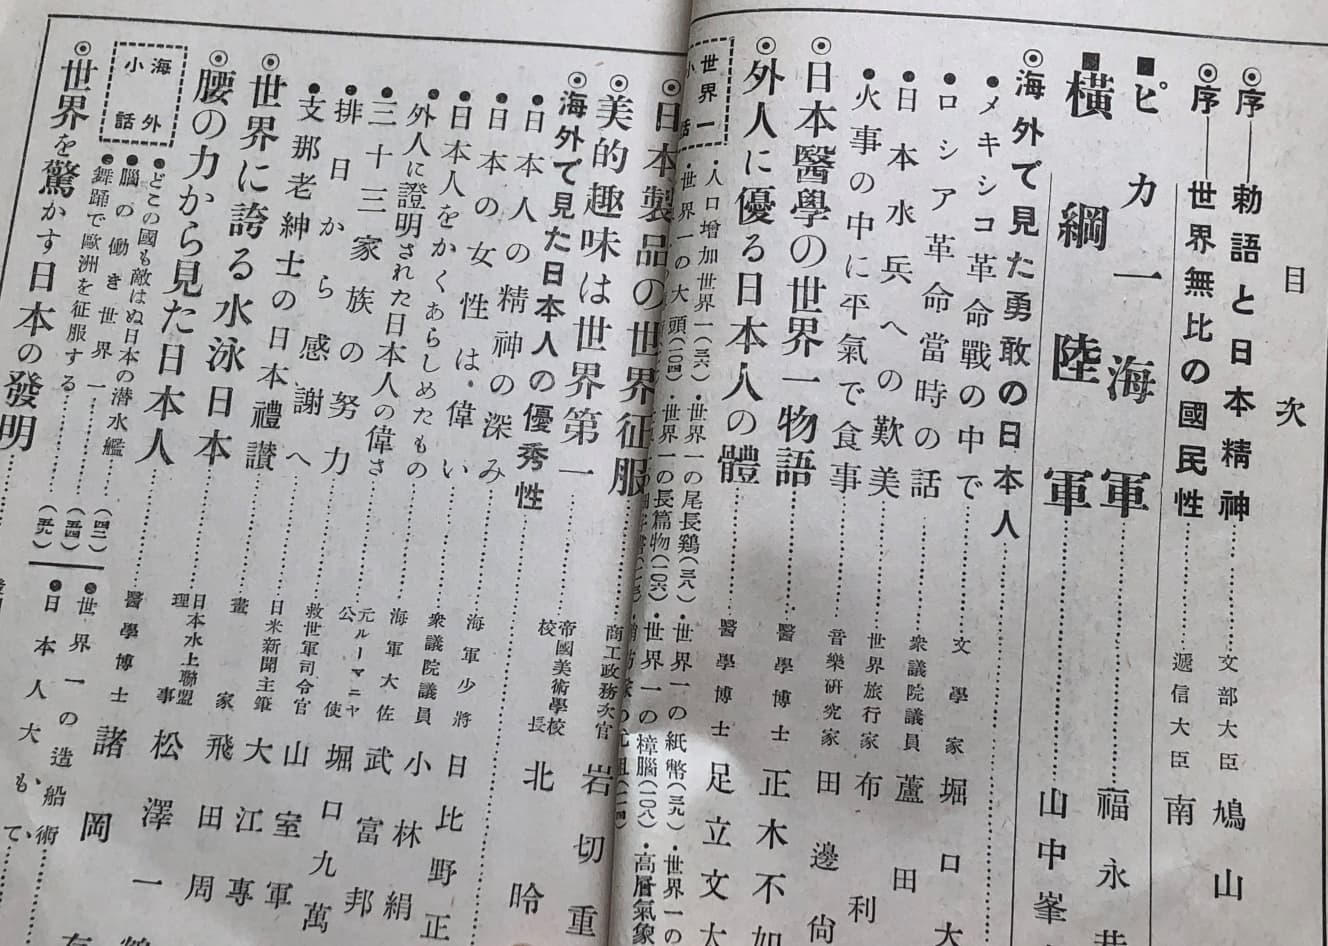 目次
◉序──勅語と日本精神……文部大臣 鳩山
◉序──世界無比の國民性……遞信大臣 南
■ピカ一海軍……福永恭
■横綱陸軍……山中峯
◉海外で見た勇敢の日本人……
●メキシコ革命戰の中で……文學家 堀口大
●ロシア革命當時の話……衆議院議員 蘆田
●日本水兵への歎美……世界旅行家 布利
●火事の中に平氣で食事……音樂硏究家 田邊尙
◉日本醫學の世界一物語……醫學博士 正木不如
◉外人に優る日本人の體……醫學博士 足立文太
世界一小話
・人口增加世界一(三六)・世界一の尾長鷄(三八)・世界一の紙幣(三九)・世界一の
・世界一の大頭(一〇四)・世界一の長篇物(一〇六)・世界一の樟腦(一〇八)・高層氣象
◉日本製品の世界征服 商工政務次官 岩切重
◉美的趣味は世界第一……帝國美術學校校長 北昤
◉海外で見た日本人の優秀性……
●日本人の精神の深み……海軍少將 日比野正
●日本の女性は偉い……衆議院議員 小林絹
●日本人をかくあらしめたもの……海軍大佐 武富邦
●外人に證明された日本人の偉さ……元ルーマニヤ公使 堀口九萬
●三十三家族の努力……救世軍司令官 山室軍
●排日から感謝へ……日米新聞主筆 大江專
●支那老紳士の日本禮讃……畫家 飛田周
◉世界に誇る水泳日本……日本水上聯盟理事 松澤一鶴
◉腰の力から見た日本人……醫學博士 諸岡存
海外小話
●どこの國も敵はぬ日本の潜水艦……(四二)
●腦の働き世界一……(五四)
●舞踊で歐洲を征服する……(五九)
●世界一の造船術
●日本人大もて、……
◉世界を驚かす日本の發明……